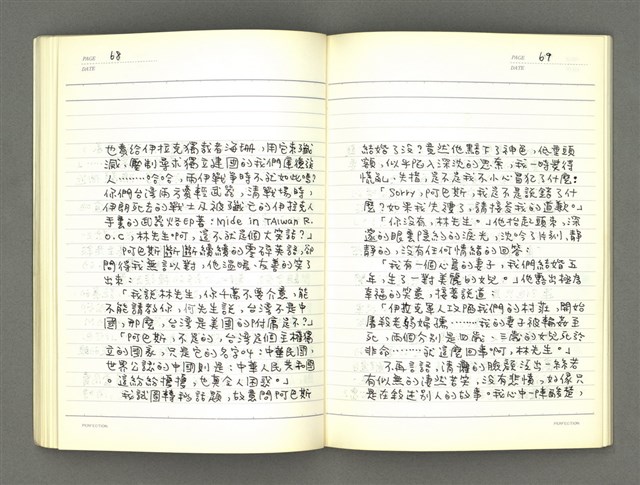 PAGE 68
DATE
也賣給伊拉克獨裁者海珊，用它來殲
滅、壓制尋求獨立建國的我們庫德族
人………哈哈，兩伊戰爭時不就如此嗎？
你們台灣兩方賣輕武器，清戰場時，
伊朗死去的戰士以及被殲亡的伊拉克人
手裏的武器烙印著：Mide in TAiwan R.
O.C，林先生啊，這不就是個大笑話？」
阿巴斯斷斷續續的零碎英語，卻
問得我無言以對，他溫暖、友善的笑了
出來：
「我說林先生，你千萬不要介意，能
不能請教你，何先生說，台灣不是中
國，那麼，台灣是美國的附庸是不？」
「阿巴斯，不是的，台灣是個主權獨
立的國家，只是它的名字叫：中華民國，
世界公認的中國則是：中華人民共和國
。這紛紛擾擾，也真令人困惑。」
我試圖轉移話題，故意問阿巴斯
PERFECTION
PAGE 69
DATE
結婚了沒？竟然他黯下了神色，低垂頭
額，似乎陷入深沈的悲哀，我一時覺得
慌亂、失措，是不是我不小心冒犯了什麼：
「Sorry，阿巴斯，我是不是說錯了什
麼？如果我失禮了，請接受我的道歉。」
「你沒有，林先生。」他抬起頭來，深
邃的眼裏隱約的淚光，沈吟了片刻，靜
靜的，沒有任何情緒的回答：
「我有一個心愛的妻子，我們結婚五
年，生了一對美麗的女兒。」他露出極為
幸福的笑意，接著說道：
「伊拉克軍人攻陷我們的村莊，開始
屠殺老弱婦孺………我的妻子被輪姦至
死，兩個分別是四歲、三歲的女兒死於
非命………就這麼回事啊，林先生。」
不再言語，清癯的臉顏泛出一絲若
有似無的淒然苦笑，沒有悲憤，好像只
是在敘述別人的故事。我心中一陣酸楚，
PERFECTION